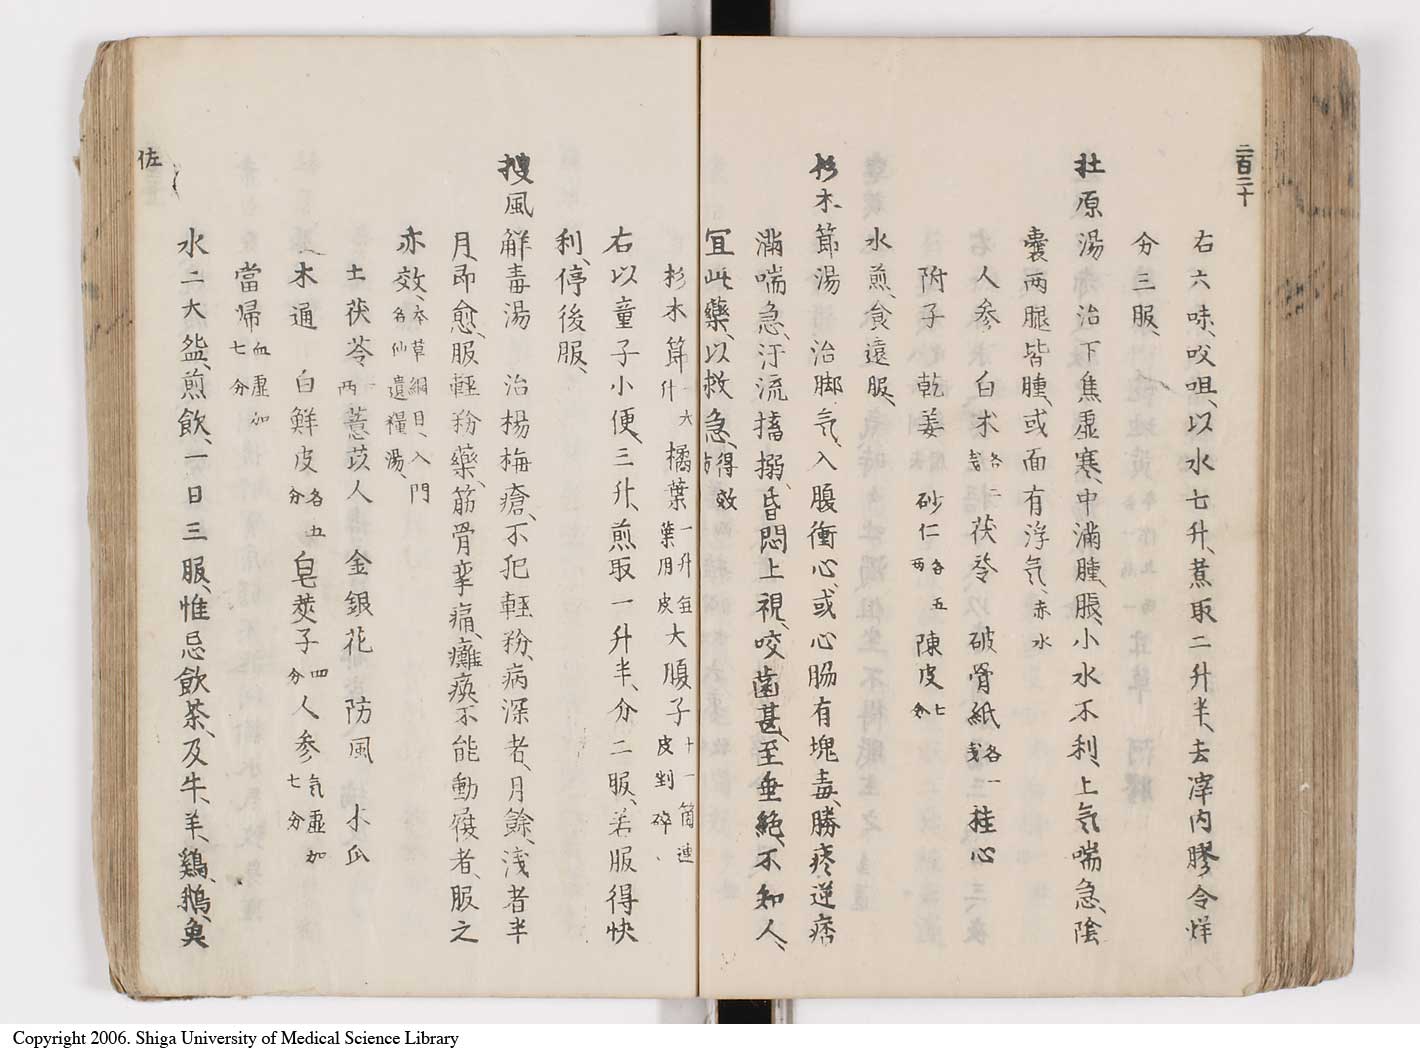 二百二十
右六味、㕮咀、以水七升、煮取二升半、去滓、内膠令烊
分三服、
壮原湯 治下焦虚寒、中滿腫脹、小水不利、上気喘急、陰
嚢両腿皆腫、或面有浮気、赤水
人参 白朮各二戔 茯苓 破骨紙各一戔 桂心
附子 乾姜 砂仁各五両 陳皮七分
水煎、食遠服、
杉木節湯 治脚気入腹衝心、或心腸有塊毒、勝疼逆痞
滿喘急、汗流搐搦、昏悶上視、咬歯甚、至垂絶、不知人、
宜此薬、以救急、得效方
杉木節一大升 橘葉一升無葉用皮 大腹子十一箇連皮剉碎、
右以童子小便、三升、煎取一升半、分二服、若服得快
利、停後服、
搜風解毒湯 治楊梅瘡、不犯軽粉、病深者、月餘、浅者半
月、即愈、服軽粉薬、筋骨攣痛、癱瘓不能動履者、服之
亦效、本草綱目、入門名仙遺糧湯、
土茯苓一両 薏苡人 金銀花 防風 木瓜
木通 白鮮皮各五分 皂莢子四分 人参気虚加七分
當帰血虚加七分
水二大盌、煎飲、一日三服、惟忌飲茶、及牛、羊、鶏、鵝、魚
佐
Copyright 2006. Shiga University of Medical Science Library